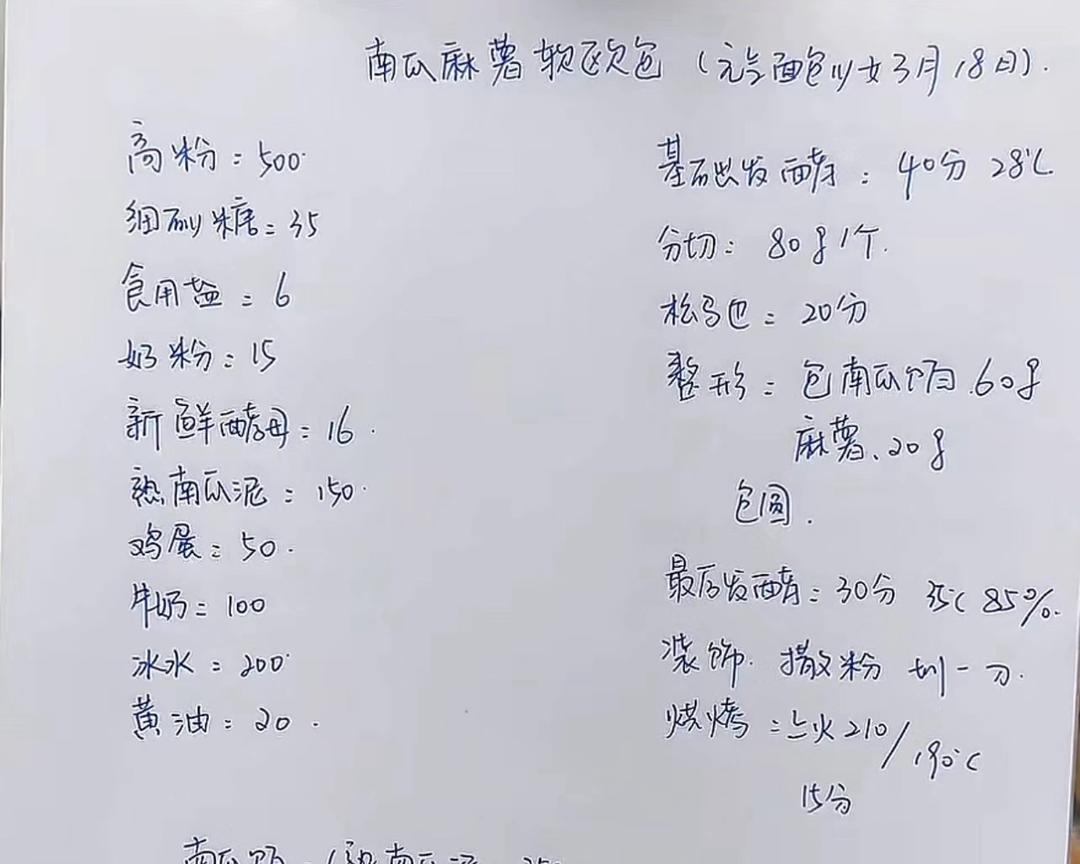 南瓜麻薯软欧包（元气面包少女3月18日）.
高粉：500
细砂糖：35
食用盐：6
奶粉：15
新鲜酵母：16
熟南瓜泥：150
鸡蛋：50
牛奶：100
冰水：200
黄油：20
基础发酵：40分 28℃
分切：80g1个.
松弛：20分
整形：包南瓜馅.60g
麻薯、20g
包圆.
最后发酵：30分 35℃ 85%.
装饰. 撒粉 划一刀.
烘烤：上火210/190℃
15分
南瓜馅（熟南瓜泥 250